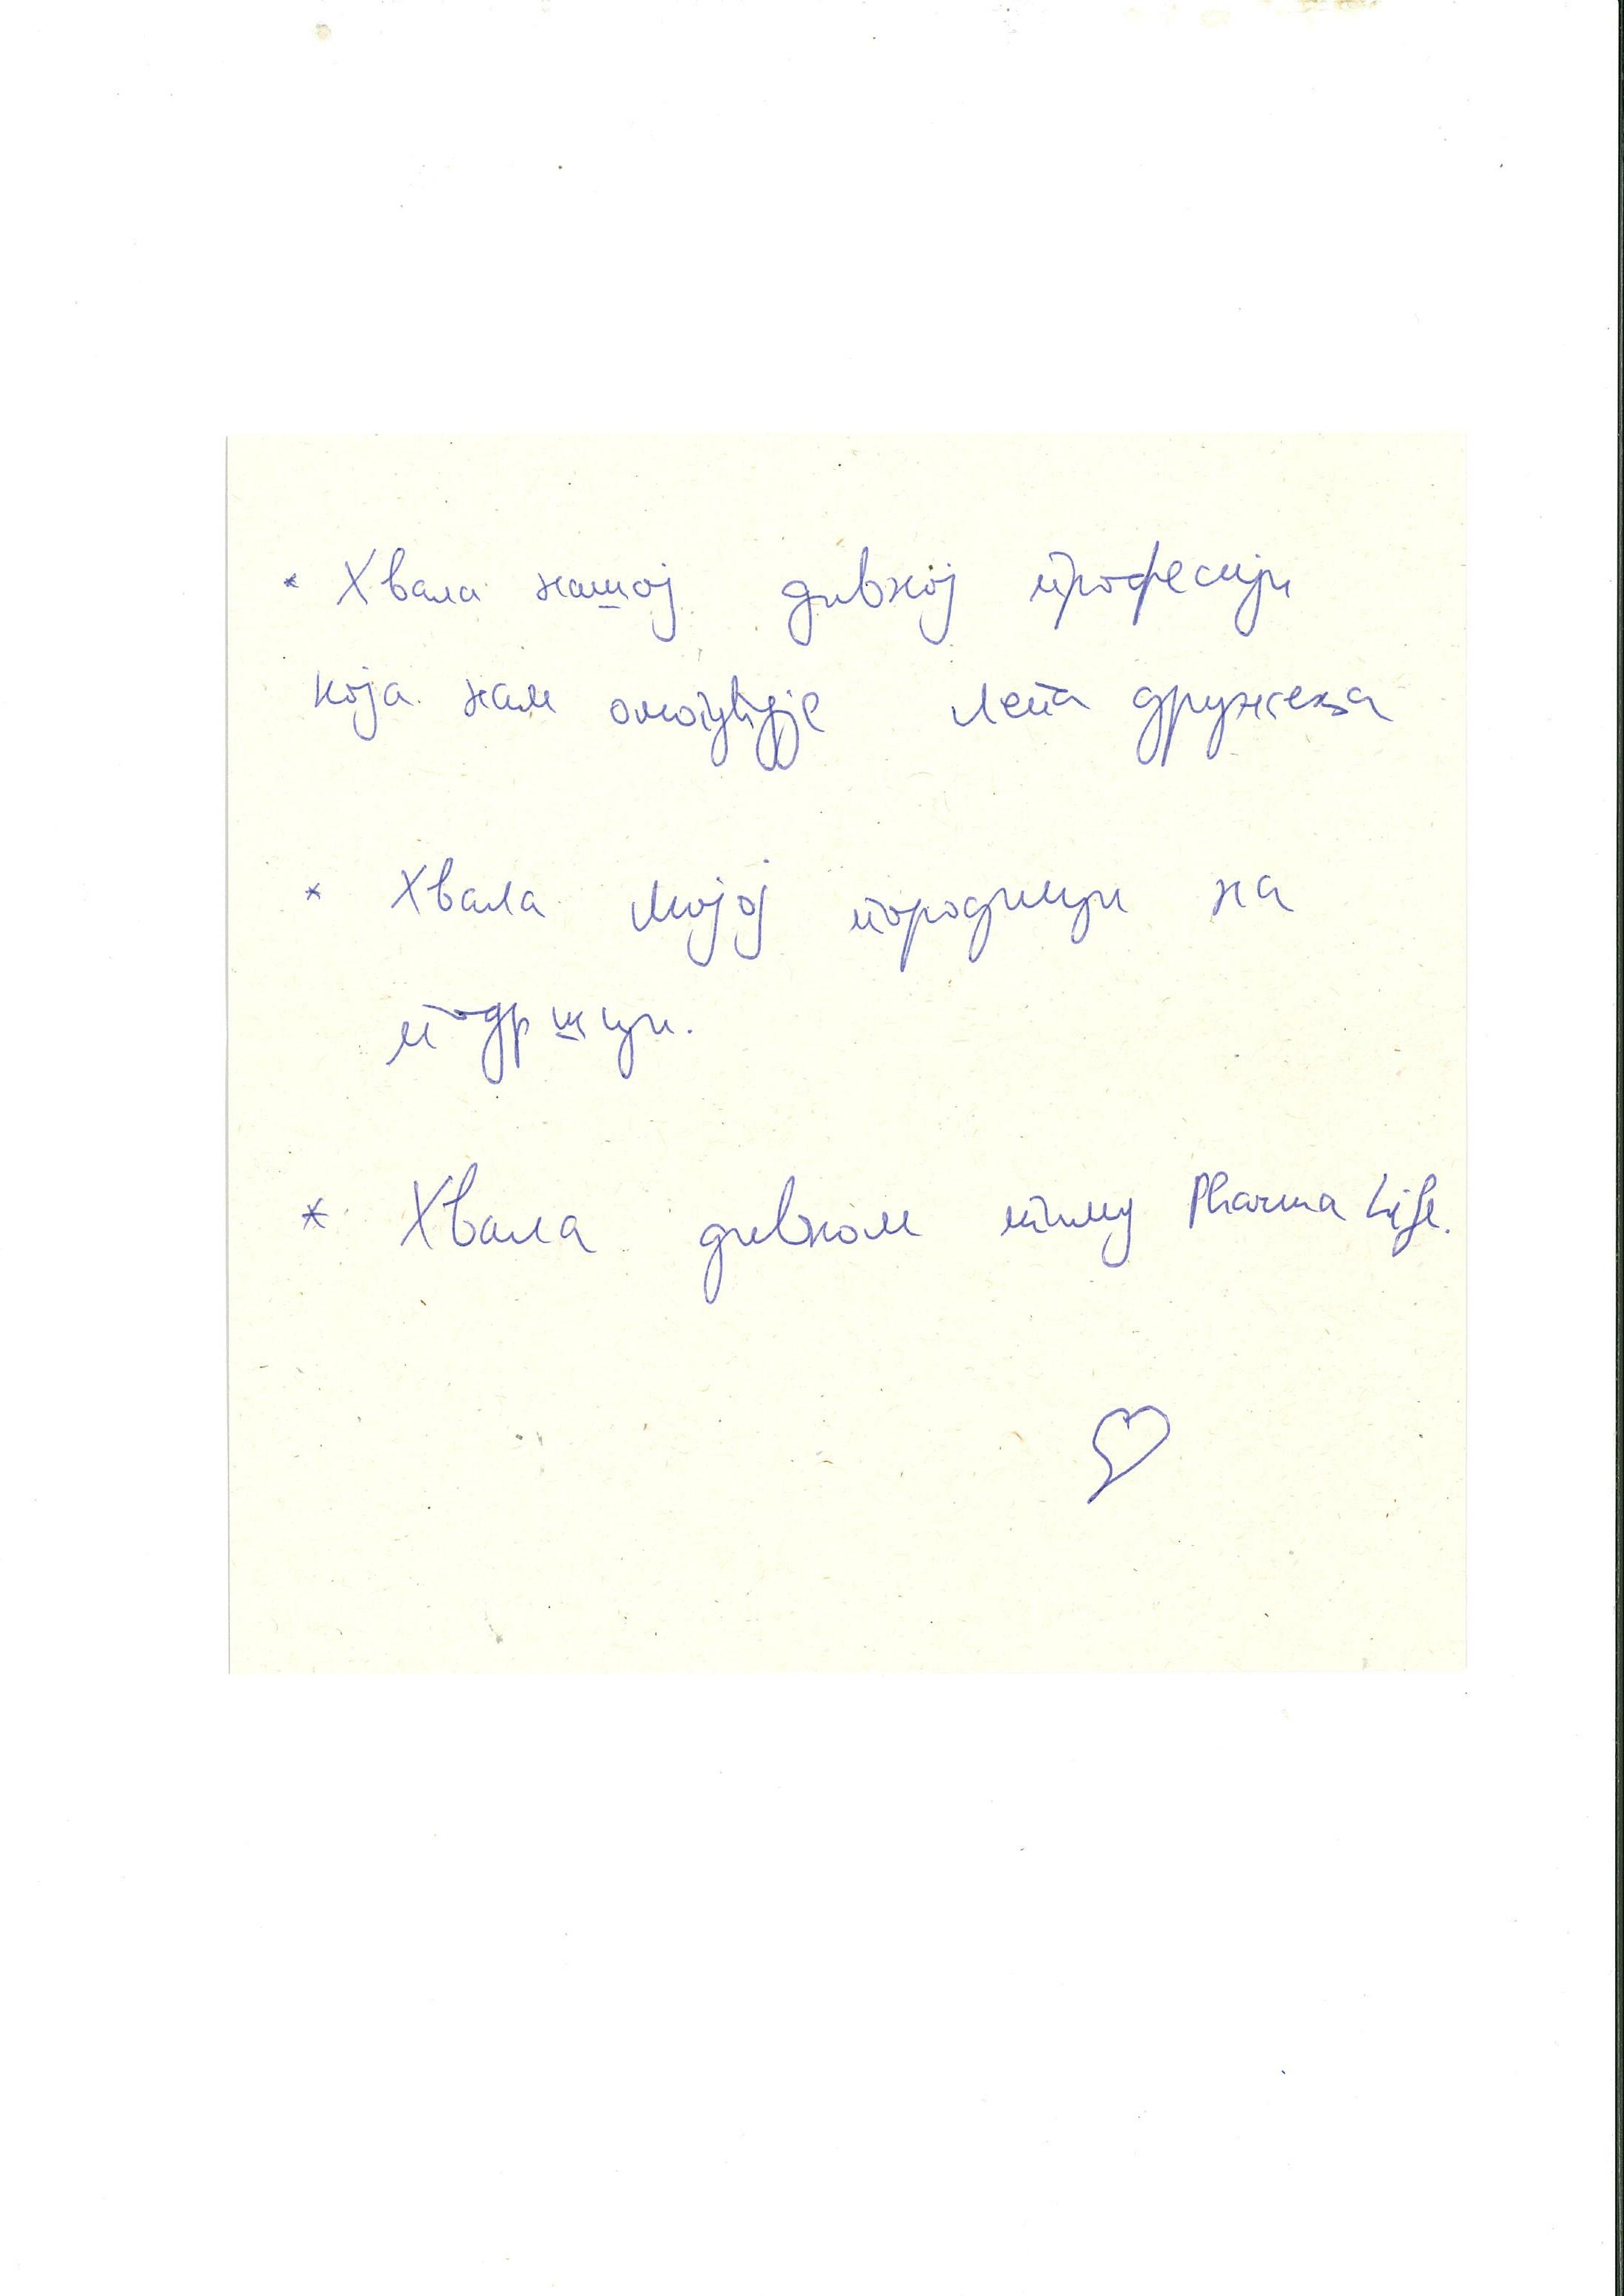 * Хвала нашој дивној професији
која нам омогућује лепа дружења
* Хвала мојој породици на
подршци.
* Хвала дивном тиму Pharma Life.